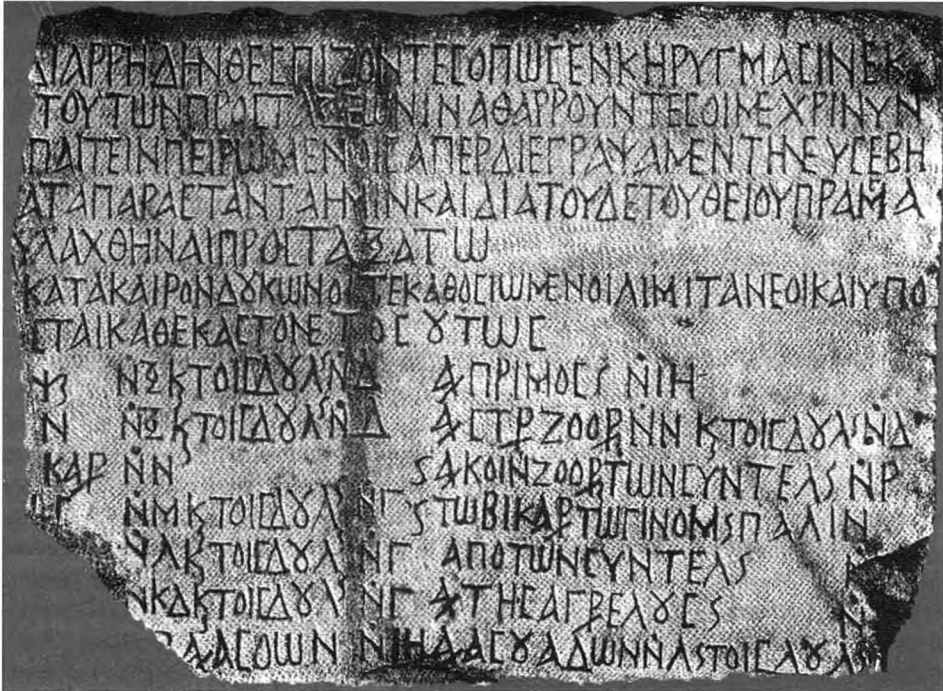 ΔΙΑΡΡΗΔΗΝΘΕΣΠΙΖΟΝΤΕΣΟΠΩΣΕΝΚΗΡΥΓΜΑΣΙΝΕΚ
ΤΟΥΤΩΝΠΡΟΣΤΑΞΕΩΝΙΝΑΘΑΡΡΟΥΝΤΕΣΟΙΜΕΧΡΙΝΥΝ
ΠΑΙΤΕΙΝΠΕΙΡΩΜΕΝΟΙΣΑΠΕΡΔΙΕΓΡΑΨΑΜΕΝΤΗΝΕΥΣΕΒΗ
ΑΤΑΠΑΡΑΣΤΑΝΤΑΗΜΙΝΚΑΙΔΙΑΤΟΥΔΕΤΟΥΘΕΙΟΥΠΡΑΜΑ
ΥΛΑΧΘΗΝΑΙΠΡΟΣΤΑΞΑΤΩ
ΚΑΤΑΚΑΙΡΟΝΔΟΥΚΩΝΟΙΤΕΚΑΘΟΣΙΩΜΕΝΟΙΛΙΜΙΤΑΝΕΟΙΚΑΙΥΠΟ
ΣΤΑΙΚΑΘΕΚΑΣΤΟΝΕΤΟΣΟΥΤΩΣ
ΝΞ ΚΤΟΙΣΔΟΥΛΝΔ ΑΠΡΙΜΟΣ ΝΙΗ
Ν ΝΞ ΚΤΟΙΣΔΟΥΛΝΔ ΑΣΤΡ ΖΟΟΡ ΝΝ ΚΤΟΙΣΔΟΥΛΝΔ
ΚΑΡ ΝΝ ΑΚΟΙΝΖΟΟΡ ΤΩΝΣΥΝΤΕΛ ΝΡ
ΝΜ ΚΤΟΙΣΔΟΥΛ ΝΓ ΤΩΒΙΚΑΡ ΤΩΓΙΝΟΜ ΠΑΛΙΝ
ΝΛ ΚΤΟΙΣΔΟΥΛ ΝΓ ΑΠΟΤΩΝΣΥΝΤΕΛ
ΝΚΔ ΚΤΟΙΣΔΟΥΛ ΝΓ ΤΗΣ
ΝΙΗ ΑΔΩΝ ΤΟΙΣΔΟΥΛ